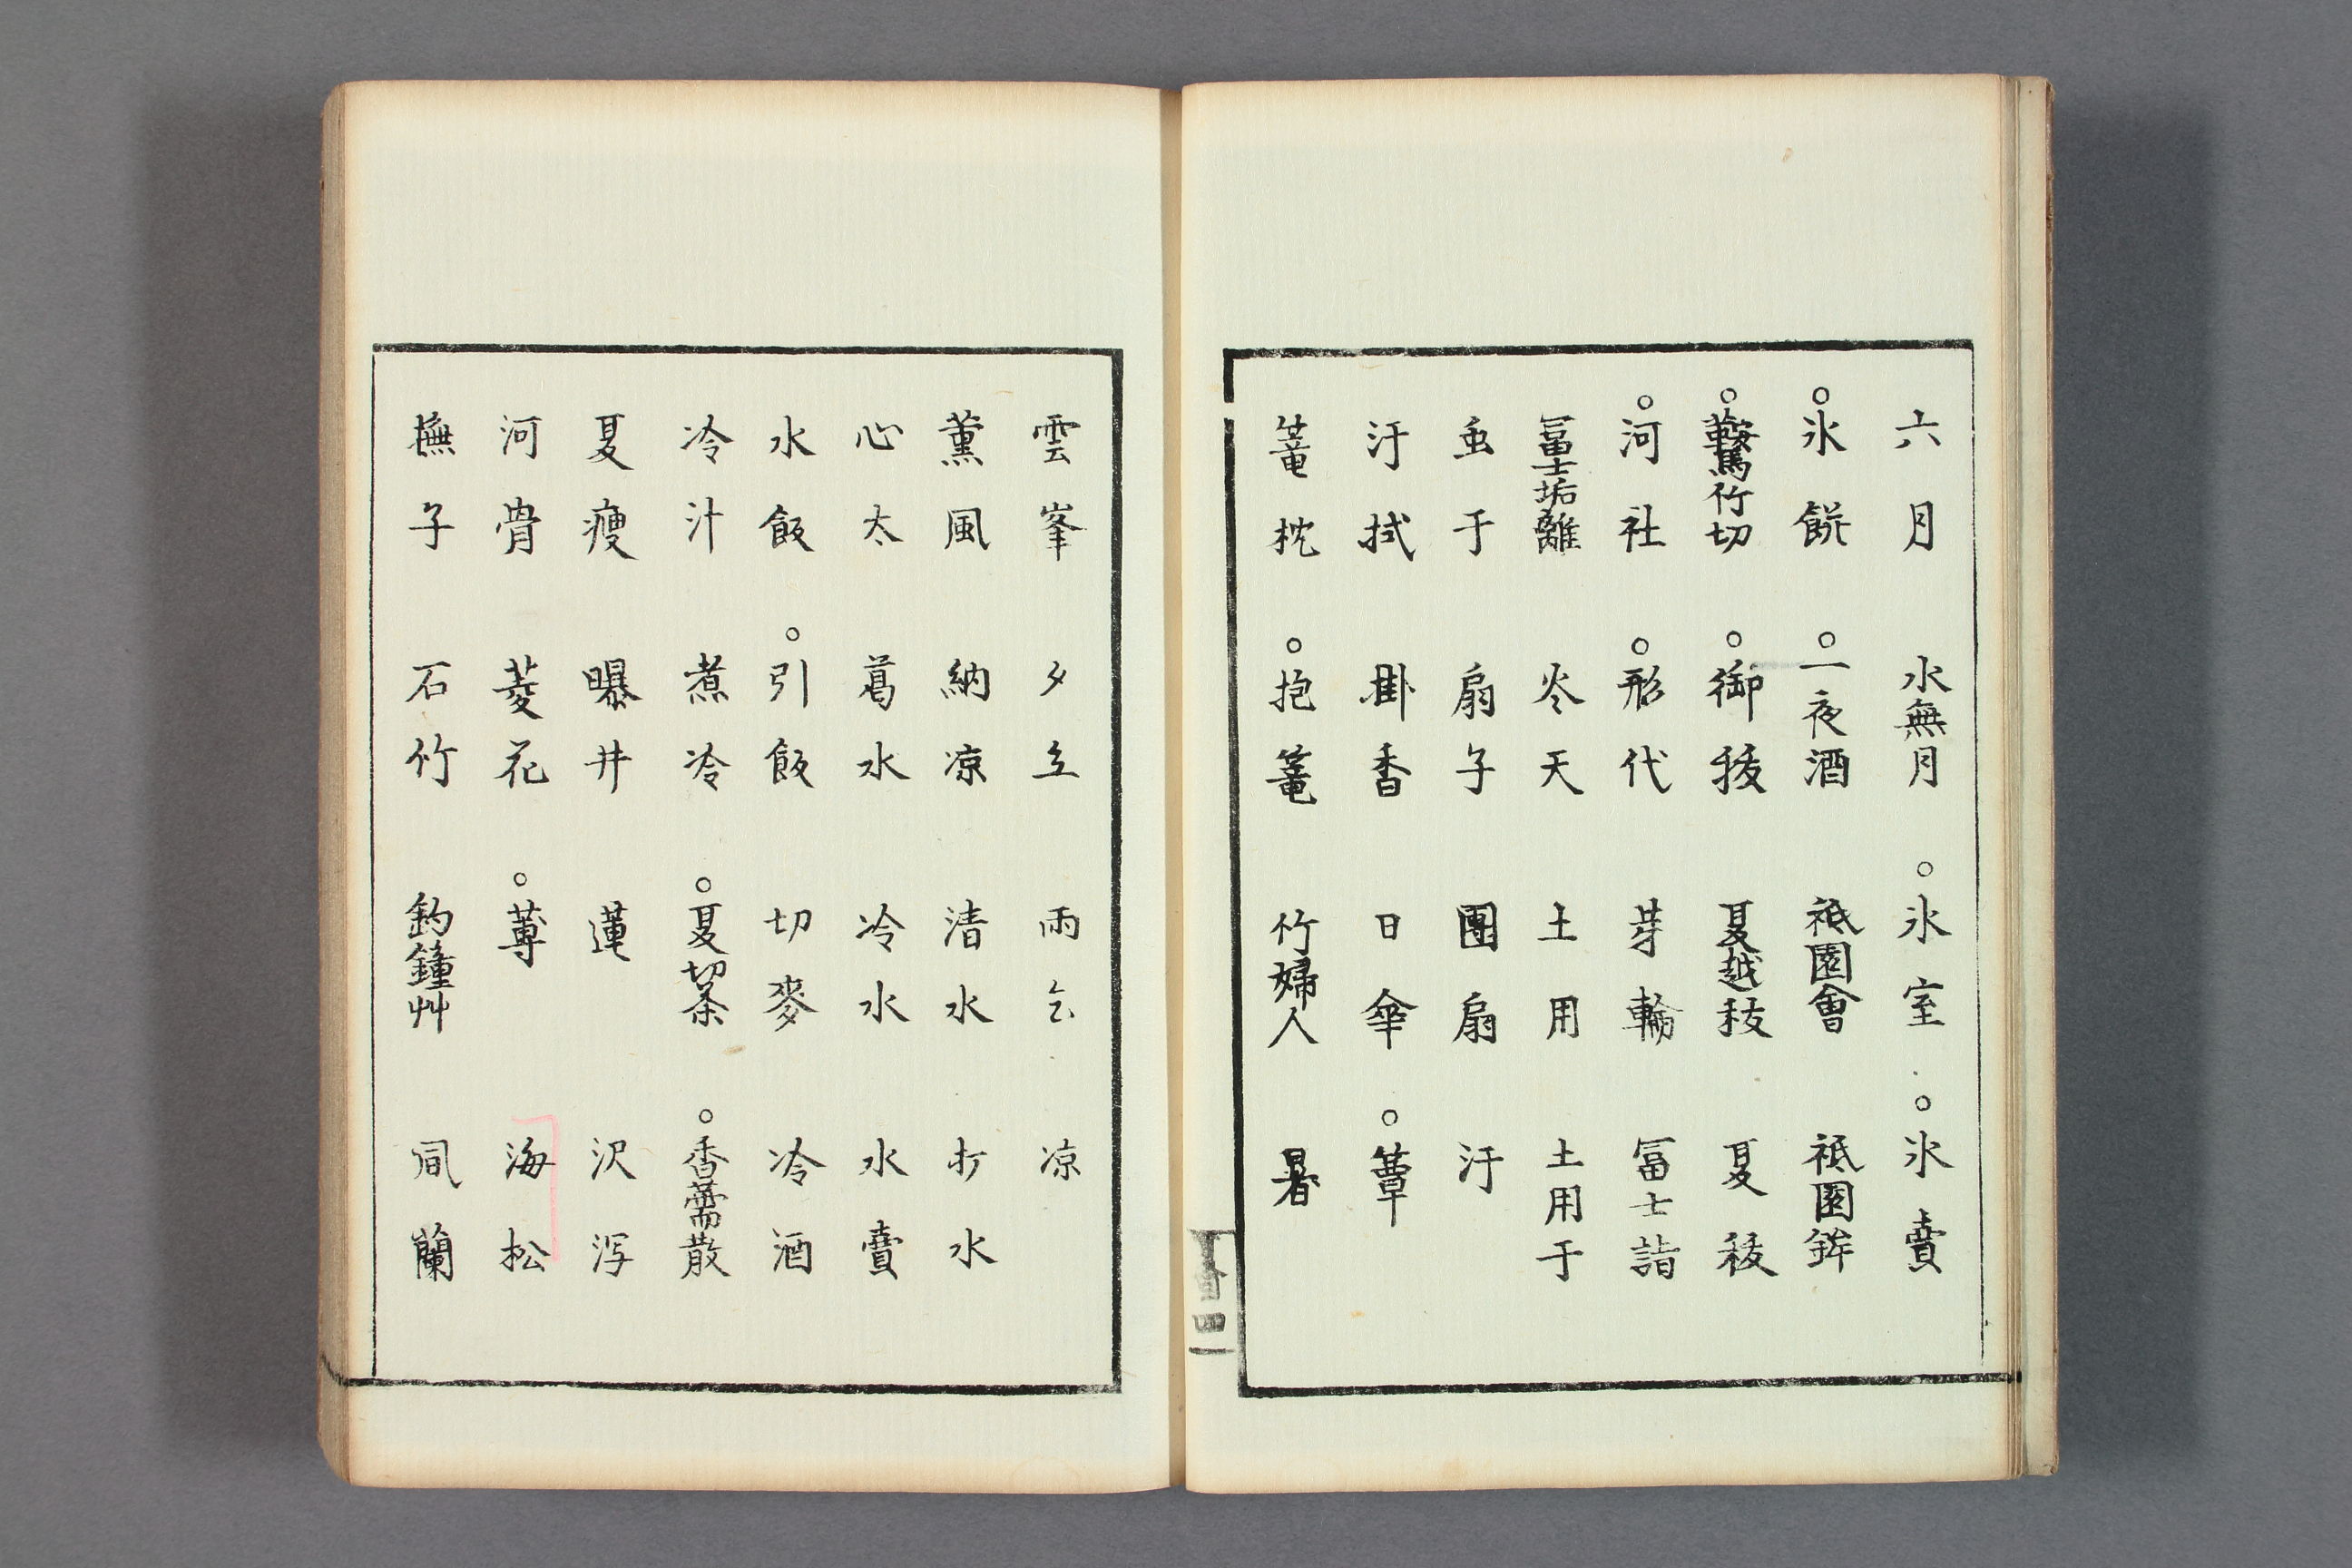 六月　水無月　○氷室　○氷賣
○氷餅　○一夜酒　祇園會　祇園鉾
○鞍馬竹切　○御祓　夏越祓　夏祓
○河社　○形代　茅輪　冨士詣
冨士垢離　炎天　土用　土用干
虫干　扇子　團扇　汗
汗拭　掛香　日傘　○簟
篭枕　○抱篭　竹婦人　暑
雲峯　夕立　雨乞　凉
薫風　納凉　清水　打水
心太　葛水　冷水　水賣
水飯　○引飯　切麥　冷酒
冷汁　煮冷　○夏切茶　○香薷散
夏痩　曝井　蓮　沢泻
河骨　菱花　○蓴　海松
撫子　石竹　釣鐘艸　風蘭